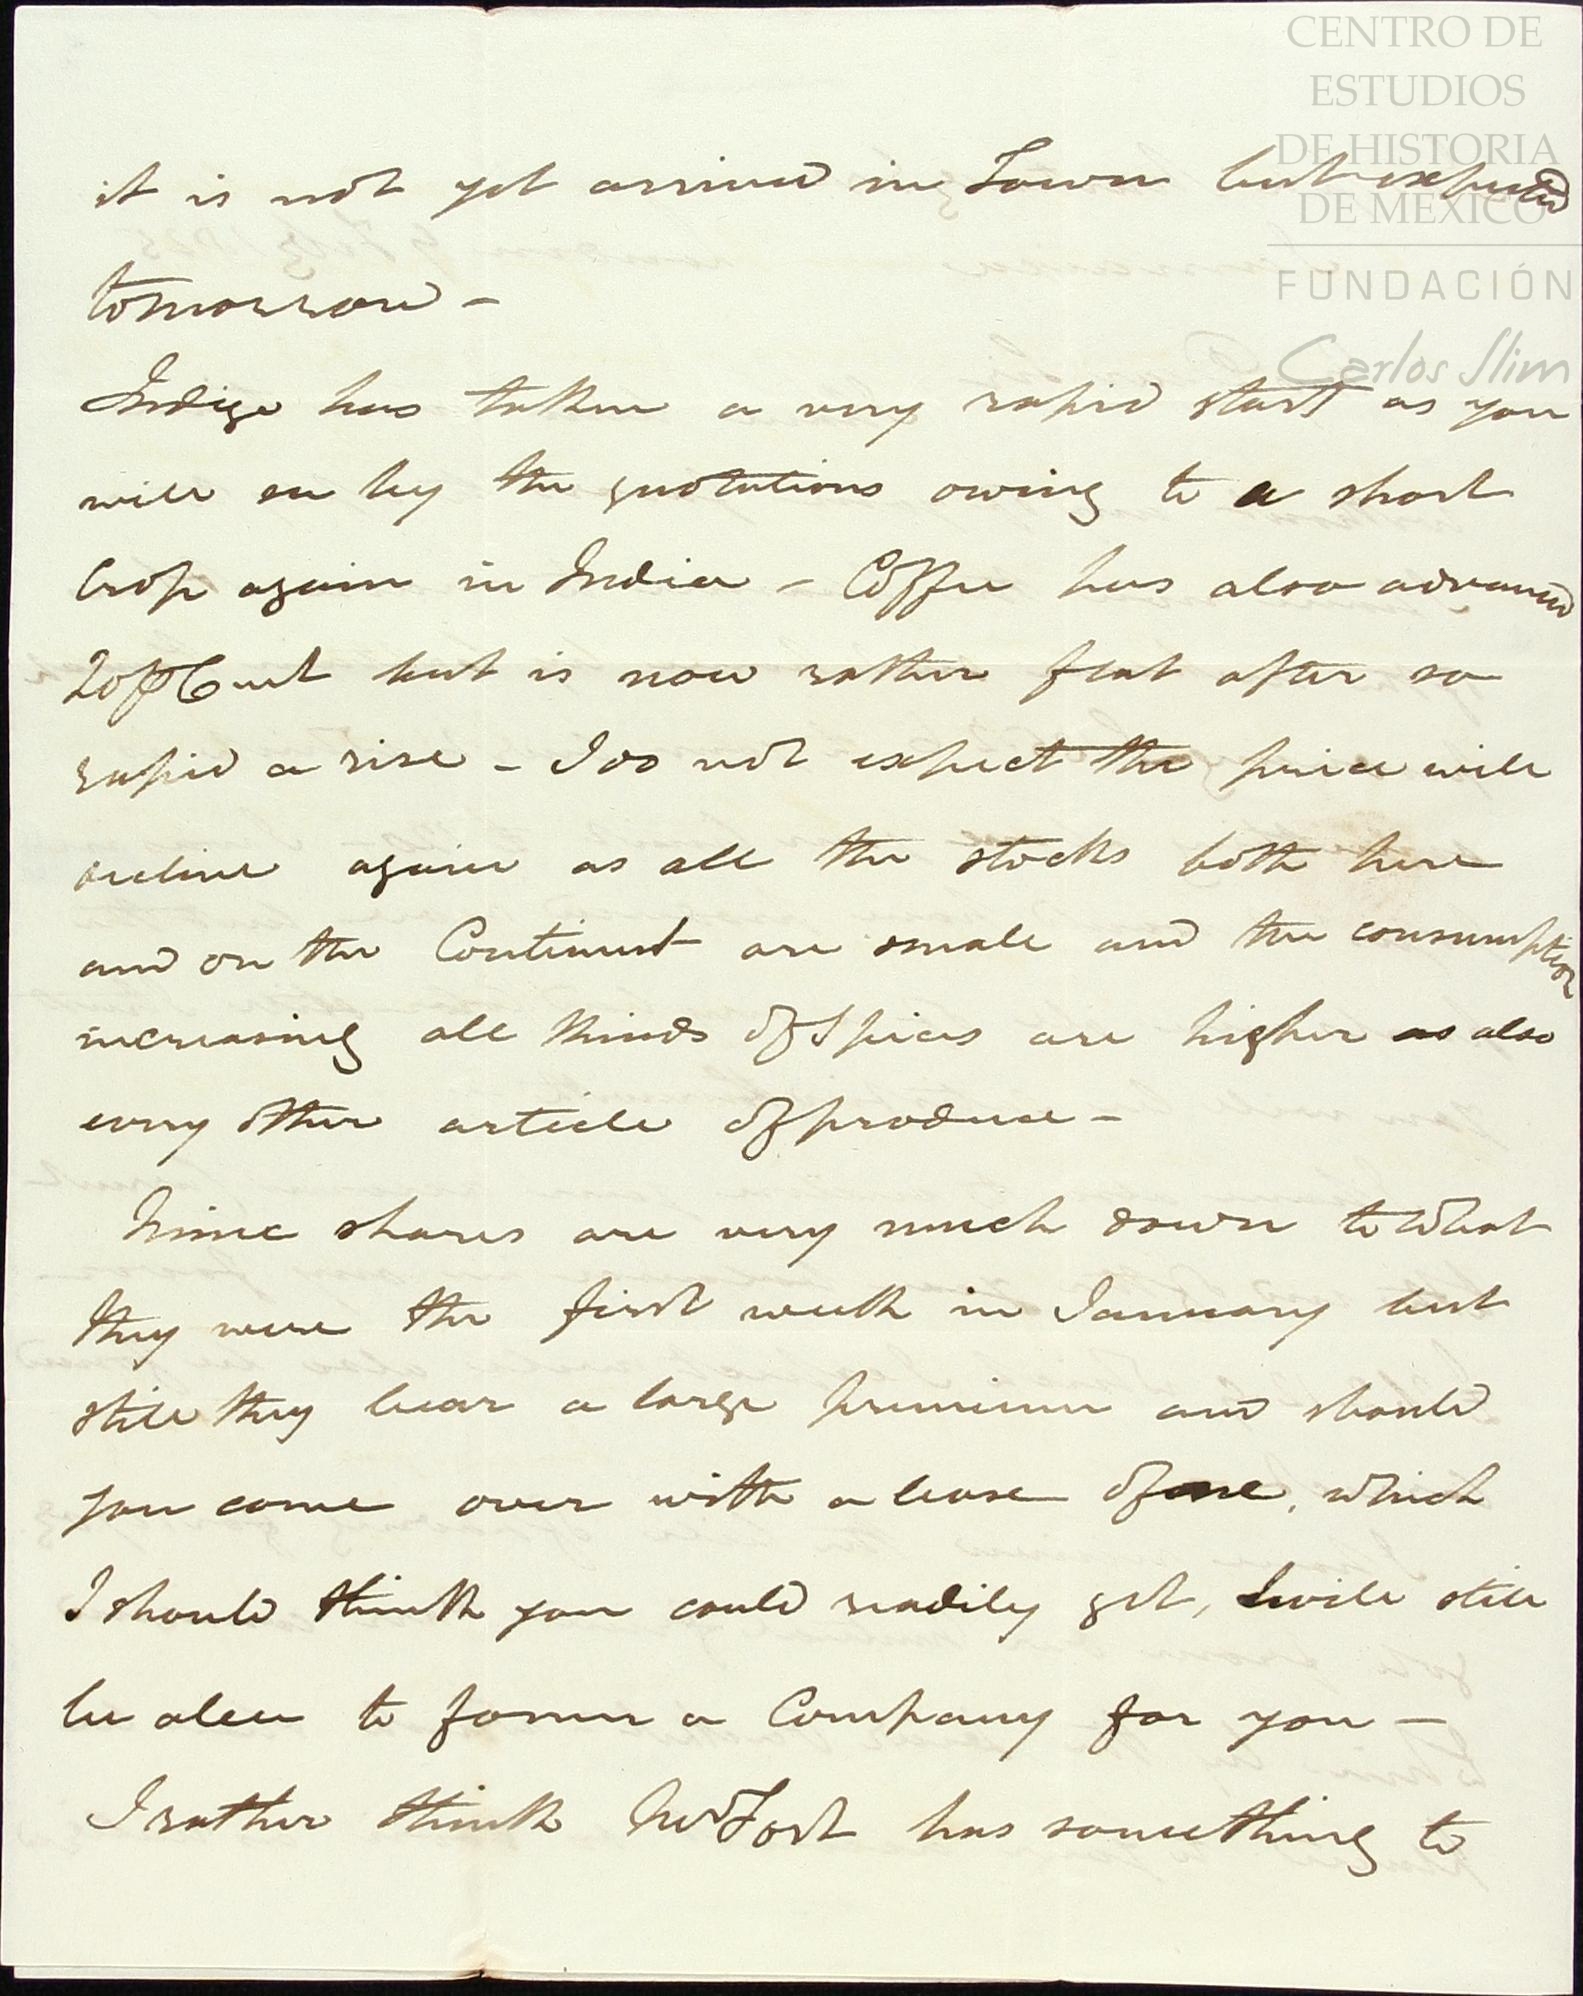 CENTRO DE
ESTUDIOS
DE HISTORIA
DE MÉXICO
FUNDACIÓN
Carlos Slim
it is not yet arrived in Town but expected
tomorrow -
Indigo has taken a very rapid start as you
will see by the quotations owing to a short
Crop again in India - Coffee has also advanced
20 p Cent but is now rather flat after so
rapid a rise - I do not expect the price will
decline again as all the stocks both here
and on the Continent are small and the consumption
increasing all kinds of Spices are higher as also
every other article of produce -
Mine shares are very much down to what
they were the first week in January but
still they bear a large premium and should
you come over with a lease of one, which
I should think you could readily get, I will still
be able to form a Company for you -
I rather think Mr Fort has something to